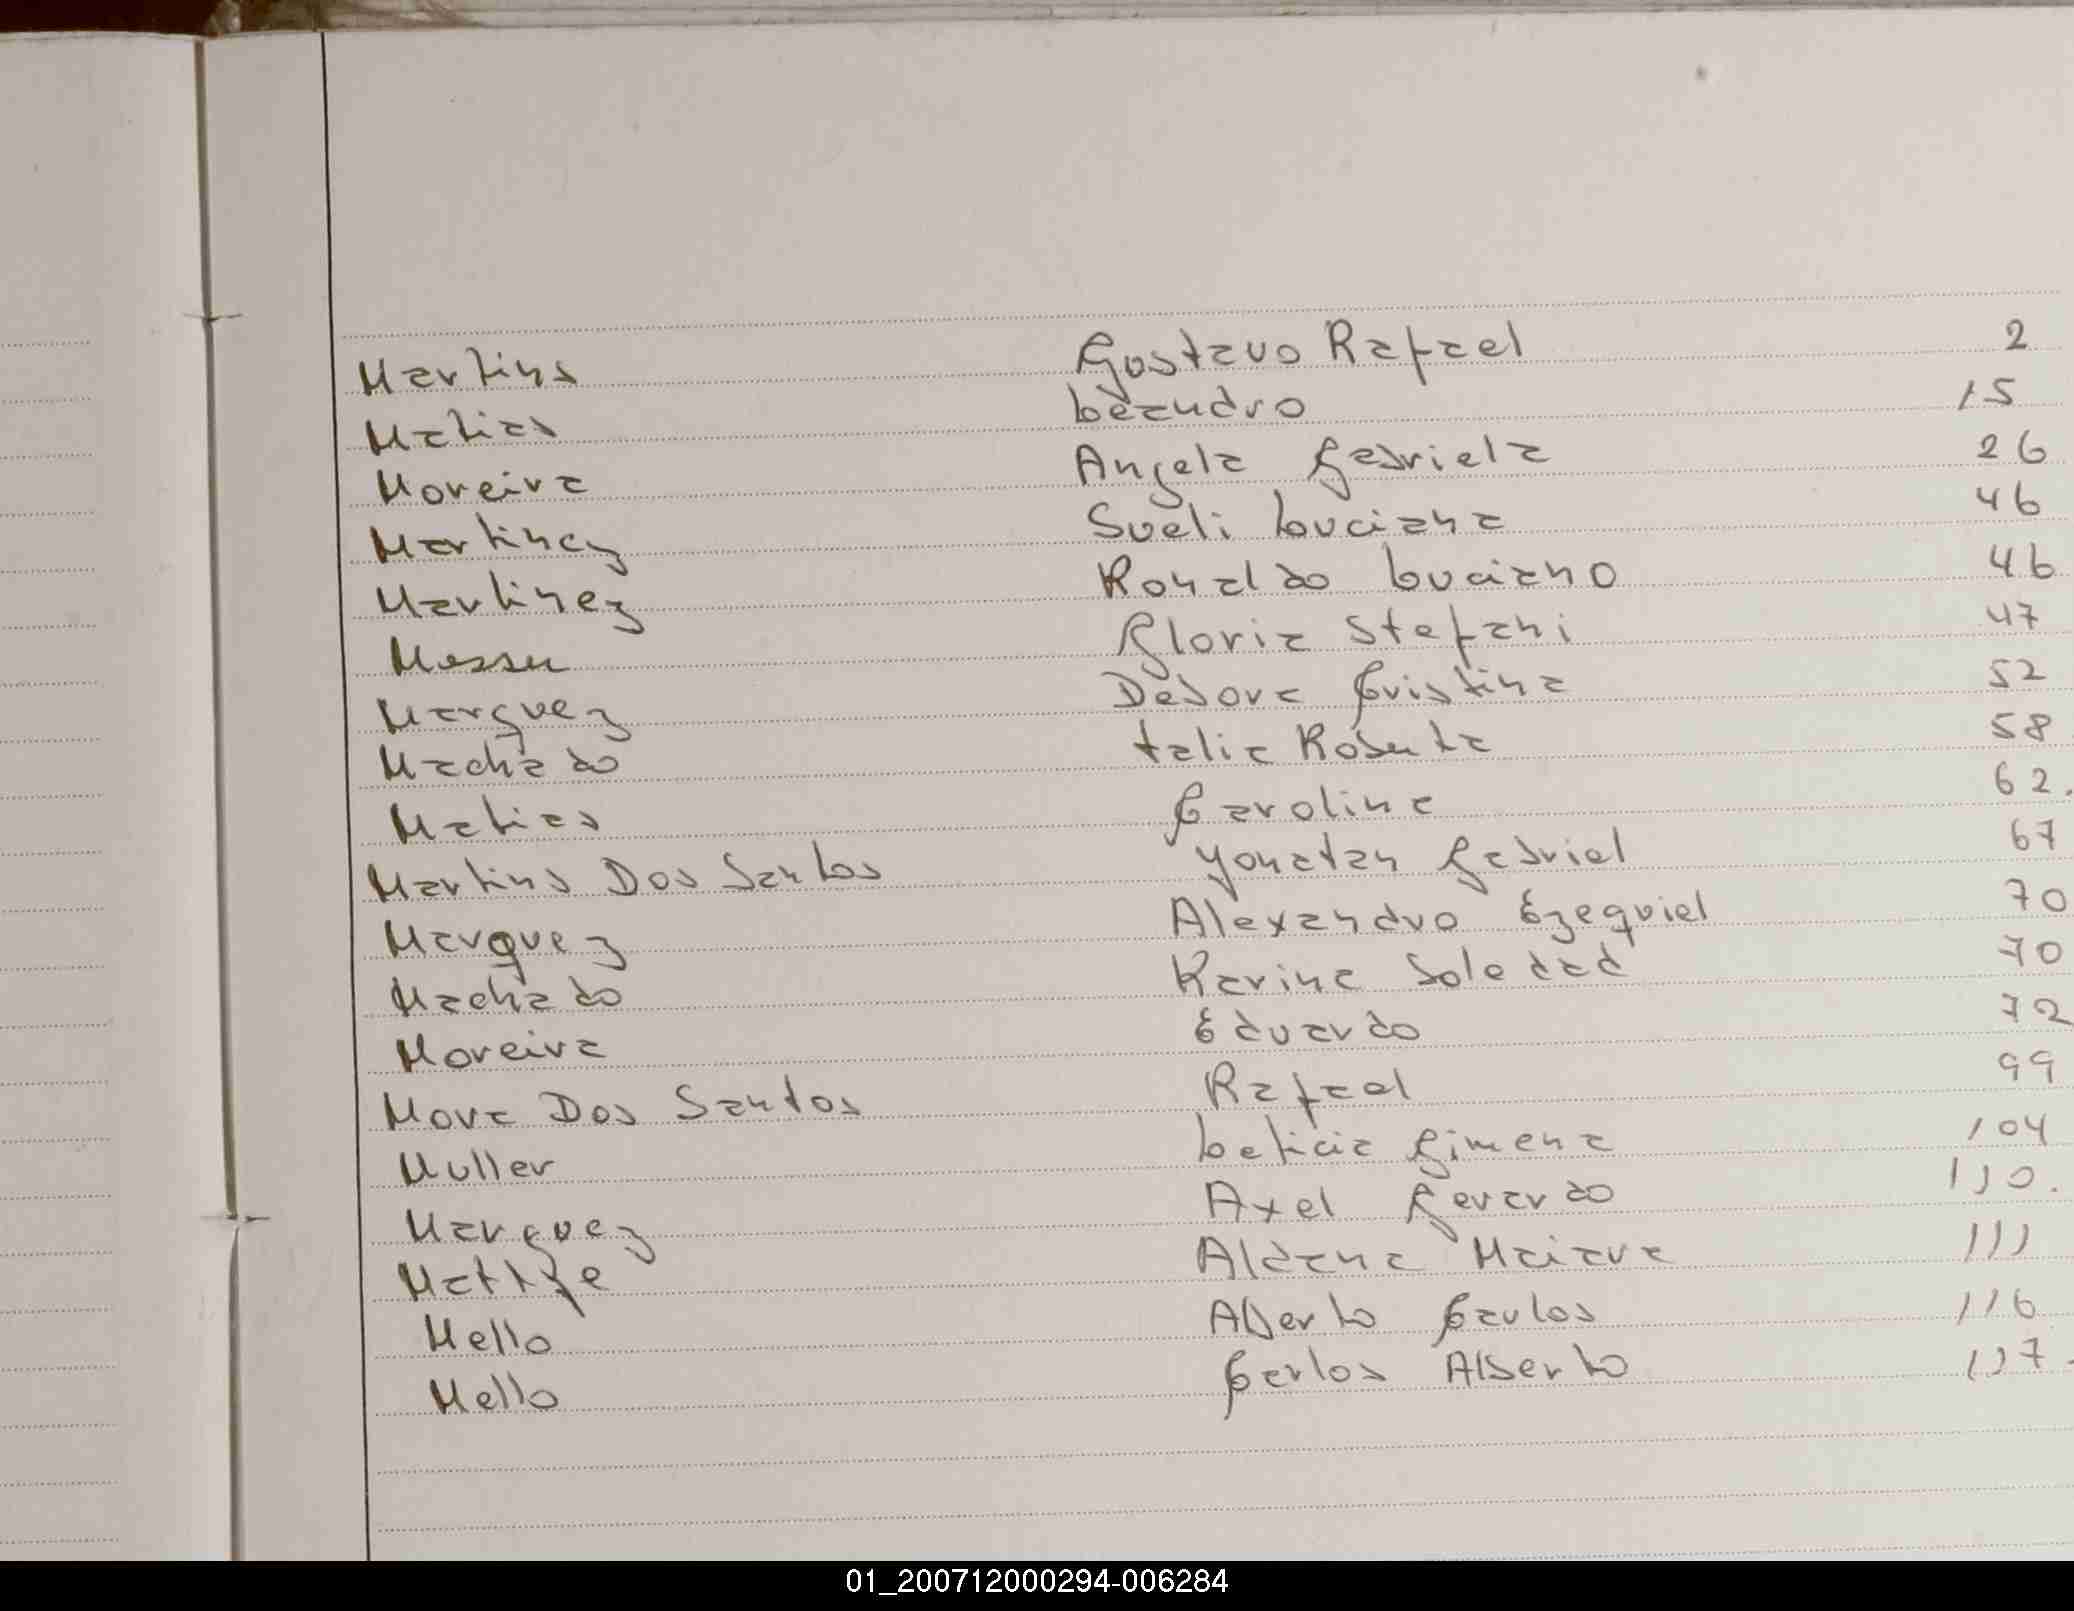 Martins Gustavo Rafael 2
Matias Leandro 15
Moreira Angela Gabriela 26
Martinez Sueli Luciana 46
Martinez Ronaldo Luciano 46
Gloria Stefani 47
Marquez Debora Cristina 52
Machado Talia Roberta 58
Matias Carolina 62.
Martins Dos Santos Yonatan Gabriel 67
Marquez Alexandro Ezequiel 70
Machado Karina Soledad 70
Moreira Eduardo 72
Mora Dos Santos Rafael 99
Muller Leticia Gimena 104
Marquez Axel Gerardo 110.
Aldana Maiara 111
Mello Alberto Carlos 116
Mello Carlos Alberto 117.
01_200712000294-006284